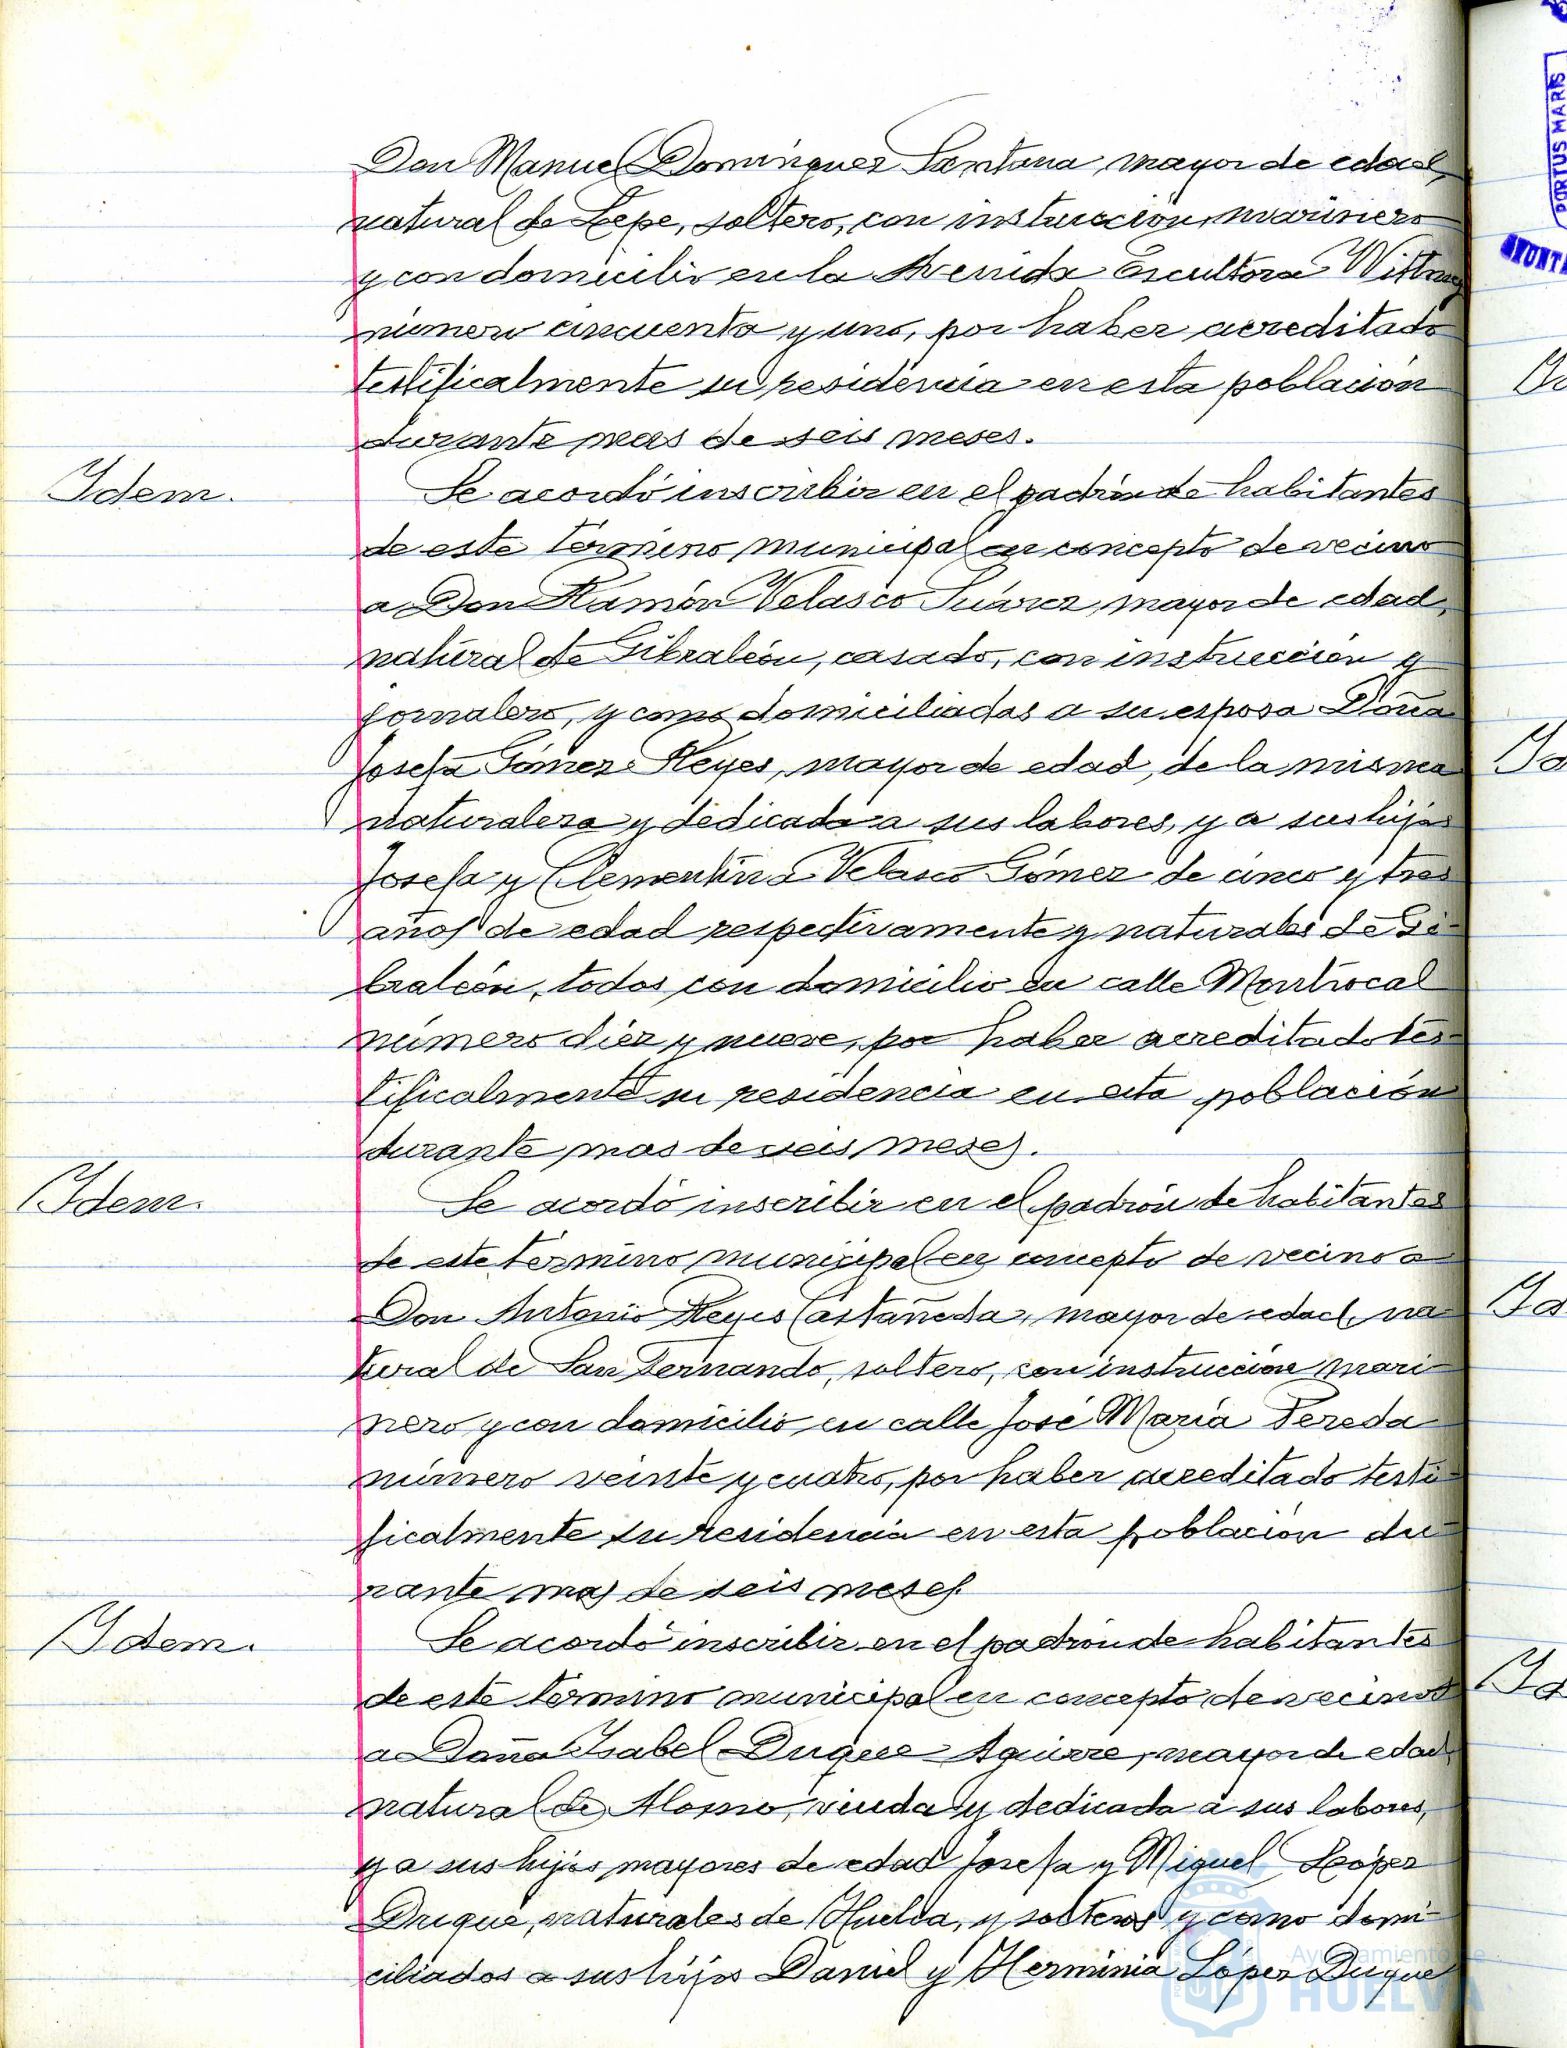 Don Manuel Dominguez Santana, mayor de edad,
natural de Lepe, soltero, con instrucción, marinero
y con domicilio en la Avenida Escultora Wittney
número cincuenta y uno, por haber acreditado
testificalmente su residencia en esta población
durante mas de seis meses.
Idem.
Se acordó inscribir en el padrón de habitantes
de este término municipal en concepto de vecino
a Don Ramón Velasco Suárez, mayor de edad,
natural de Gibraleón, casado, con instrucción y
jornalero, y como domiciliados a su esposa Doña
Josefa Gómez Reyes, mayor de edad, de la misma
naturaleza y dedicada a sus labores, y a sus hijas
Josefa y Clementina Velasco Gómez de cinco y tres
años de edad respectivamente y naturales de Gi-
braleón, todos con domicilio en calle Montrocal
número diez y nueve, por haber acreditado tes-
tificalmente su residencia en esta población
durante mas de seis meses.
Idem.
Se acordó inscribir en el padrón de habitantes
de este término municipal en concepto de vecino a
Don Antonio Reyes Castañeda, mayor de edad, na-
tural de San Fernando, soltero, con instrucción mari-
nero y con domicilio en calle José María Pereda
número veinte y cuatro, por haber acreditado testi-
ficalmente su residencia en esta población du-
rante mas de seis meses.
Idem.
Se acordó inscribir en el padrón de habitantes
de este término municipal en concepto de vecinos
a Doña Isabel Duque Aguirre, mayor de edad,
natural de Alosno, viuda y dedicada a sus labores,
y a sus hijos mayores de edad Josefa y Miguel López
Duque, naturales de Huelva, y solteros, y como domi-
ciliados a sus hijos Daniel y Herminia López Duque
Ayuntamiento de
HUELVA
PORTUS MARIS